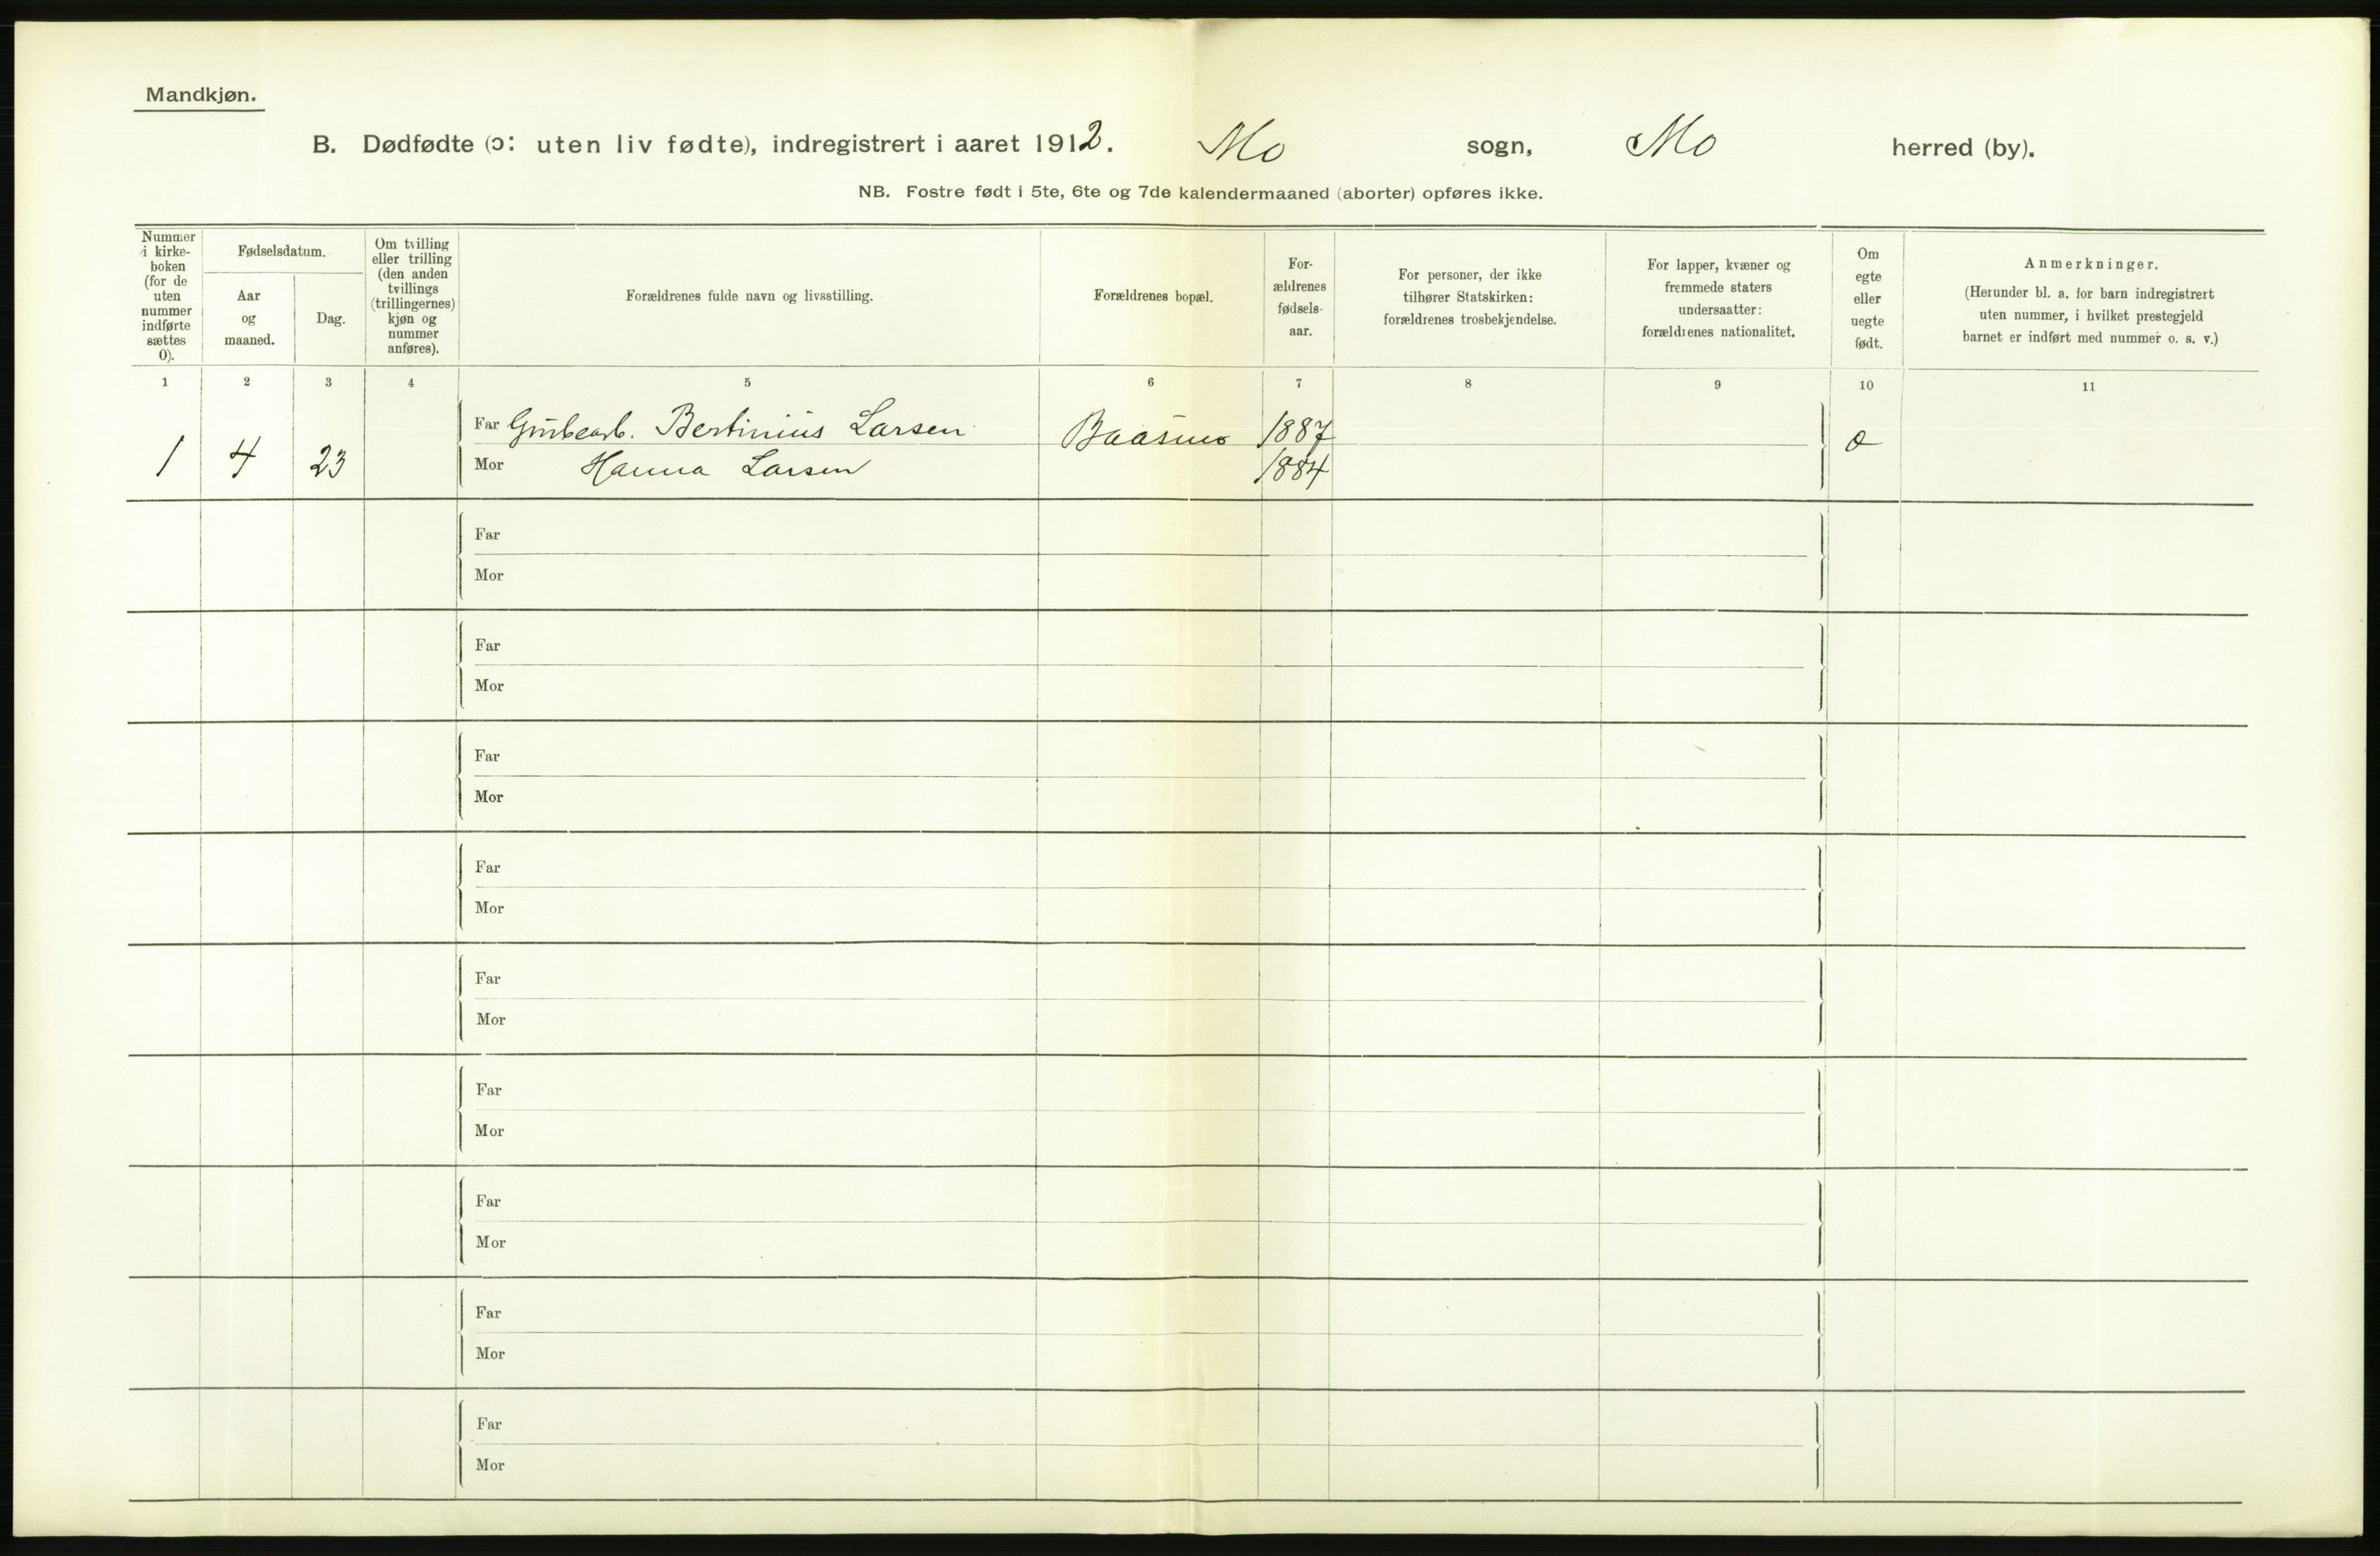 Mandkjøn.
B. Dødfødte (ɔ: uten liv fødte), indregistrert i aaret 1912. Mo sogn, Mo herred (by).
NB. Fostre født i 5te, 6te og 7de kalendermaaned (aborter) opføres ikke.
Nummer
i kirke-
boken
(for de
uten
nummer
indførte
sættes
0).
Fødselsdatum.
Aar
og
maaned.
Dag.
Om tvilling
eller trilling
(den anden
tvillings
(trillingernes)
kjøn og
nummer
anføres).
Forældrenes fulde navn og livsstilling.
Forældrenes bopæl.
For-
ældrenes
fødsels-
aar.
For personer, der ikke
tilhører Statskirken:
forældrenes trosbekjendelse.
For lapper, kvæner og
fremmede staters
undersaatter:
forældrenes nationalitet.
Om
egte
eller
uegte
født.
Anmerkninger.
(Herunder bl. a. for barn indregistrert
uten nummer, i hvilket prestegjeld
barnet er indført med nummer o. s. v.)
1 2 3 4 5 6 7 8 9 10 11
Far Grubearb. Bertinius Larsen Baasmo 1887
1 4 23 Mor Hanna Larsen 1884
Far
Mor
Far
Mor
Far
Mor
Far
Mor
Far
Mor
Far
Mor
Far
Mor
Far
Mor
Far
Mor